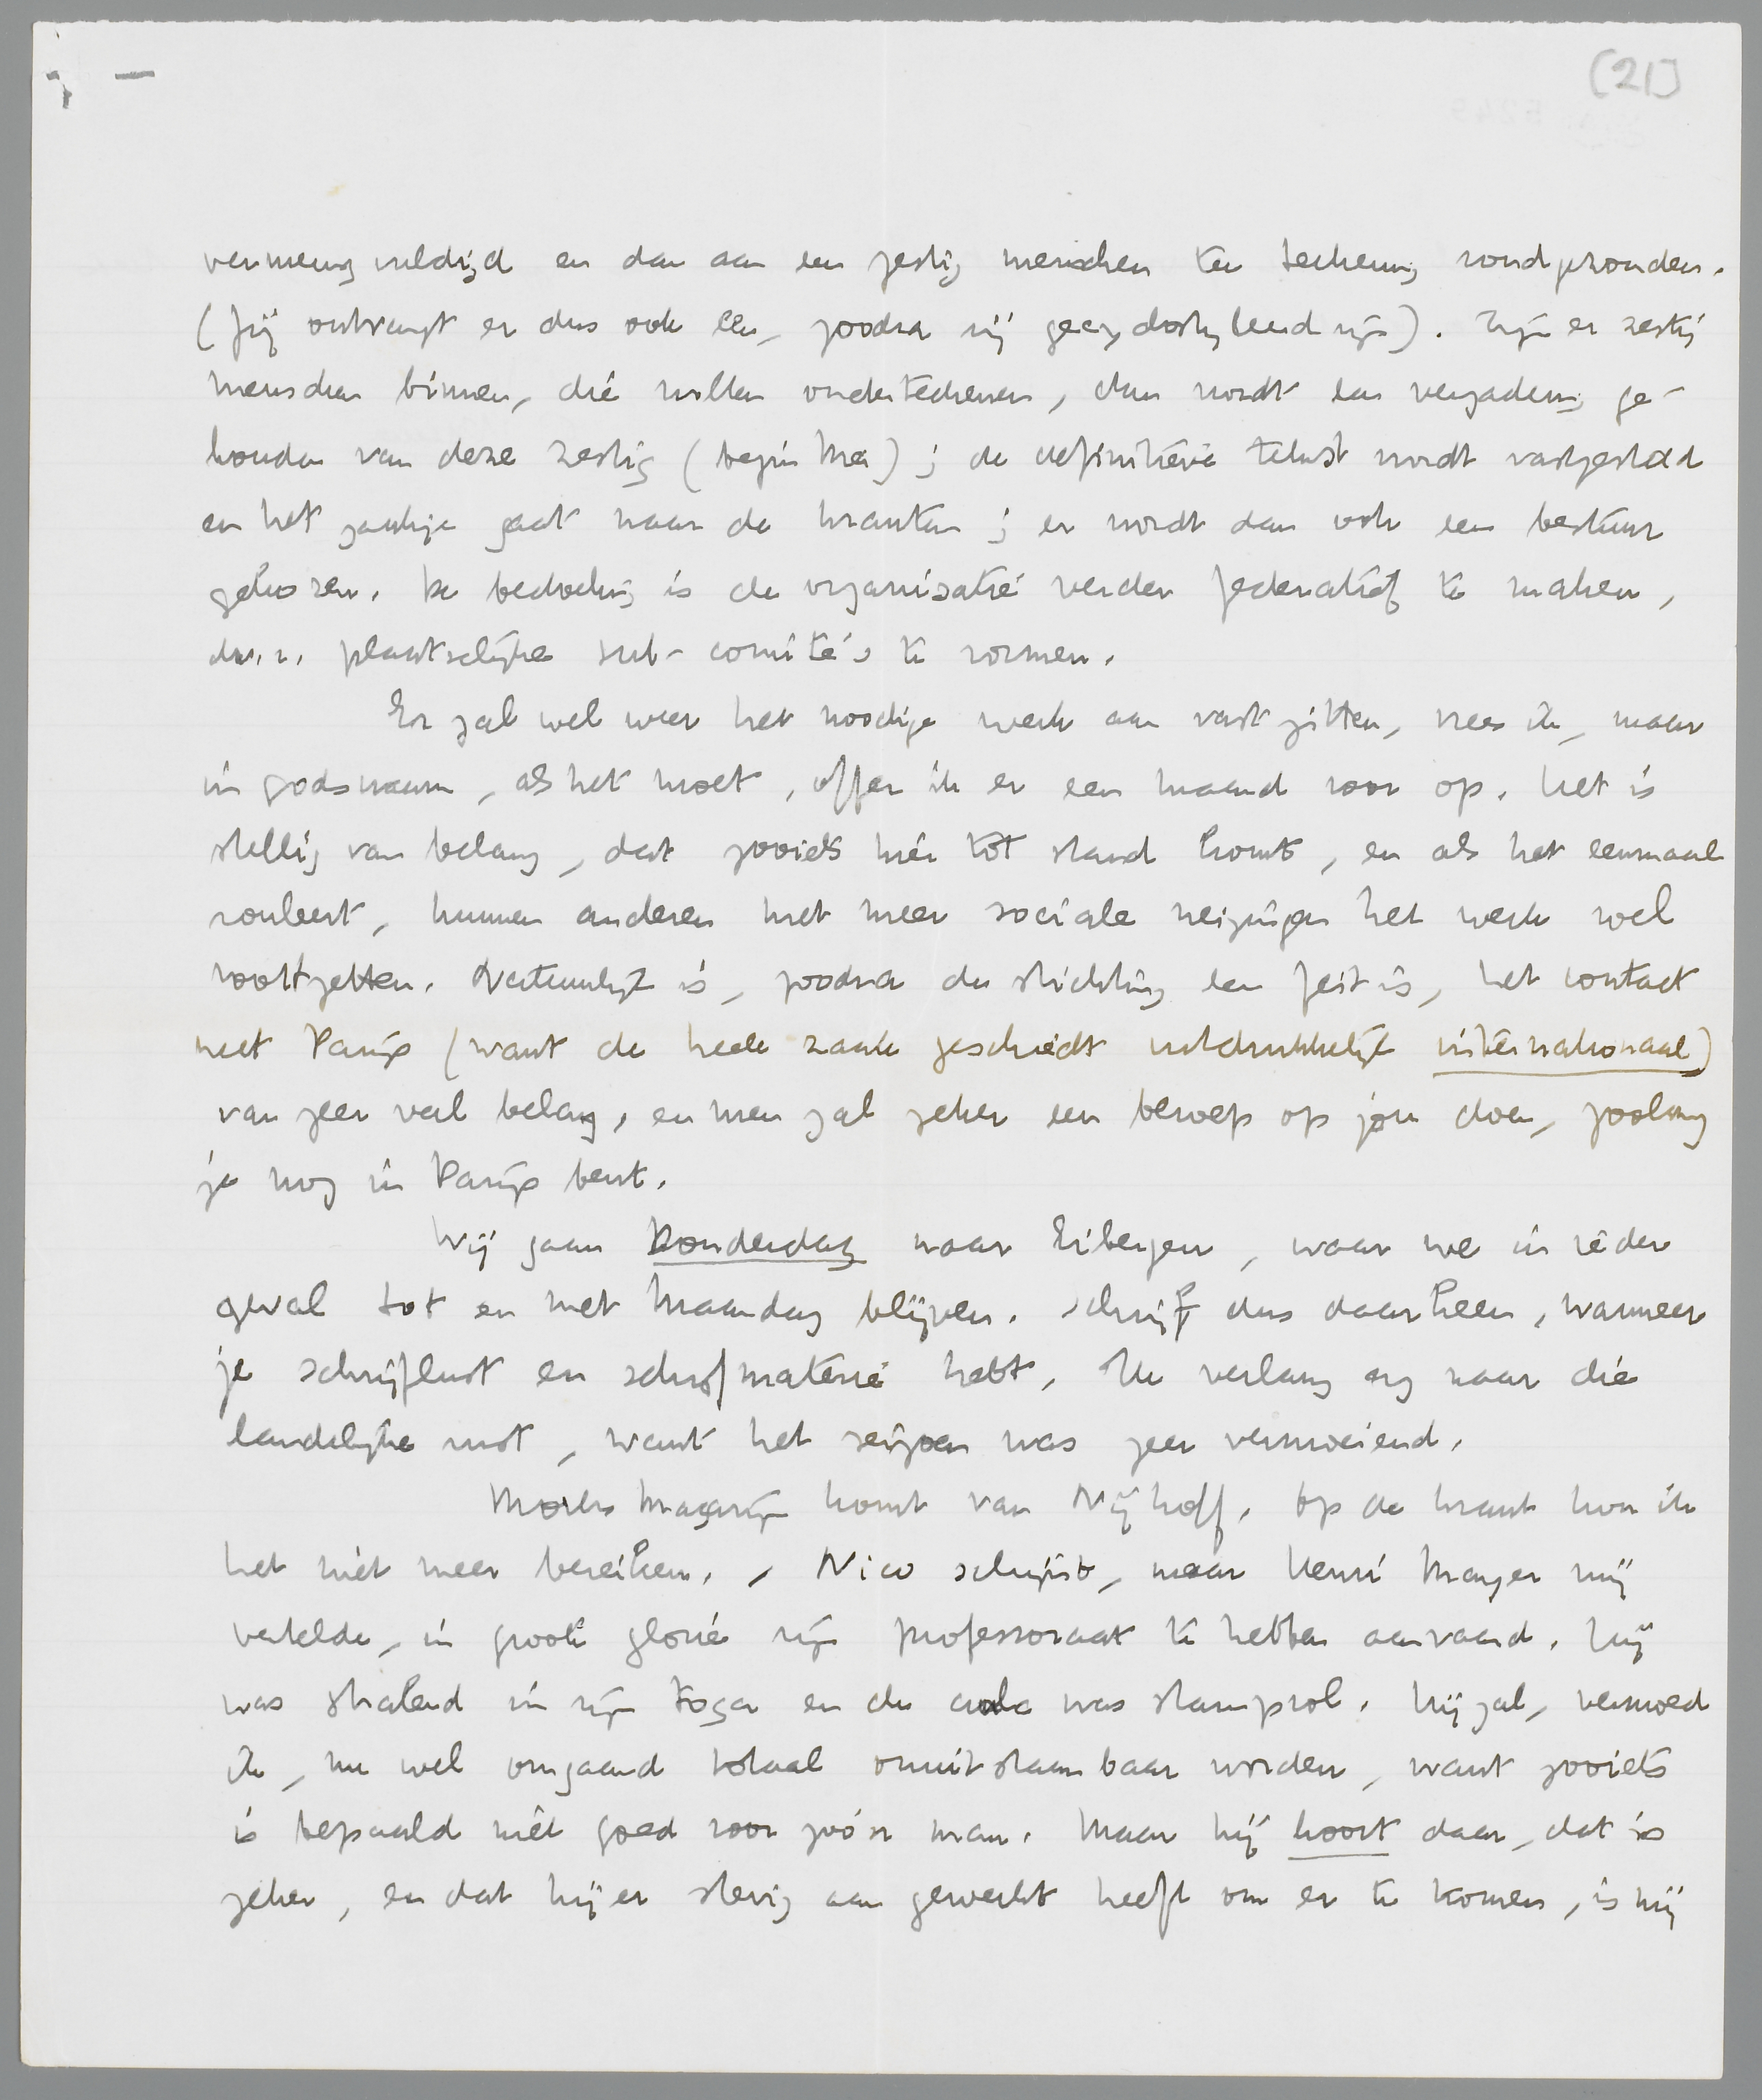 [21]
vermenigvuldigd en dan aan een zestig menschen ter teekening rondgezonden.
(Jij ontvangt er dus ook een, zoodra wij gecyclostyleerd zijn). Zijn er zestig
menschen binnen, die willen onderteekenen, dan wordt een vergadering ge-
houden van deze zestig (begin Mei); de definitieve tekst wordt vastgesteld
en het zaakje gaat naar de kranten; er wordt dan ook een bestuur
gekozen. De bedoeling is de organisatie verder federatief te maken,
d.w.z. plaatselijke sub-comité's te vormen.
Er zal wel weer het noodige werk aan vast zitten, vrees ik, maar
in godsnaam, als het moet, offer ik er een maand voor op. Het is
stellig van belang, dat zooiets hier tot stand komt, en als het eenmaal
rouleert, kunnen anderen met meer sociale neigingen het werk wel
voortzetten. Natuurlijk is, zoodra de stichting een feit is, het contact
met Parijs (want de heele zaak geschiedt uitdrukkelijk internationaal)
van zeer veel belang, en men zal zeker een beroep op jou doen, zoolang
je nog in Parijs bent.
Wij gaan Donderdag naar Eibergen, waar we in ieder
geval tot en met Maandag blijven. Schrijf dus daarheen, wanneer
je schrijflust en schrijfmaterie hebt. Ik verlang erg naar die
landelijke rust, want het seizoen was zeer vermoeiend.
Multa Magarijn komt van Nijhoff. Op de krant kon ik
het niet meer bereiken. , Nico schijnt, naar Henri Mayer mij
vertelde, in groote glorie zijn professoraat te hebben aanvaard. Hij
was stralend in zijn toga en de aula was stampvol. Hij zal, vermoed
ik, nu wel omgaand totaal onuitstaanbaar worden, want zooiets
is bepaald niet goed voor zoo'n man. Maar hij hoort daar, dat is
zeker, en dat hij er stevig aan gewerkt heeft om er te komen, is mij